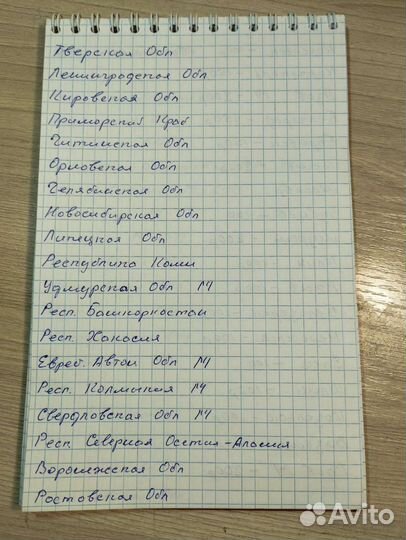 Тверская Обл
Ленинградская Обл
Кировская Обл
Приморский Край
Читинская Обл
Орловская Обл
Челябинская Обл
Новосибирская Обл
Липецкая Обл
Республика Коми
Удмурская Обл М
Респ. Башкортостан
Респ. Хакасия
Еврей. Автон Обл М
Респ. Калмыкия М
Свердловская Обл М
Респ Северная Осетия-Алания
Воронежская Обл
Ростовская Обл
Avito